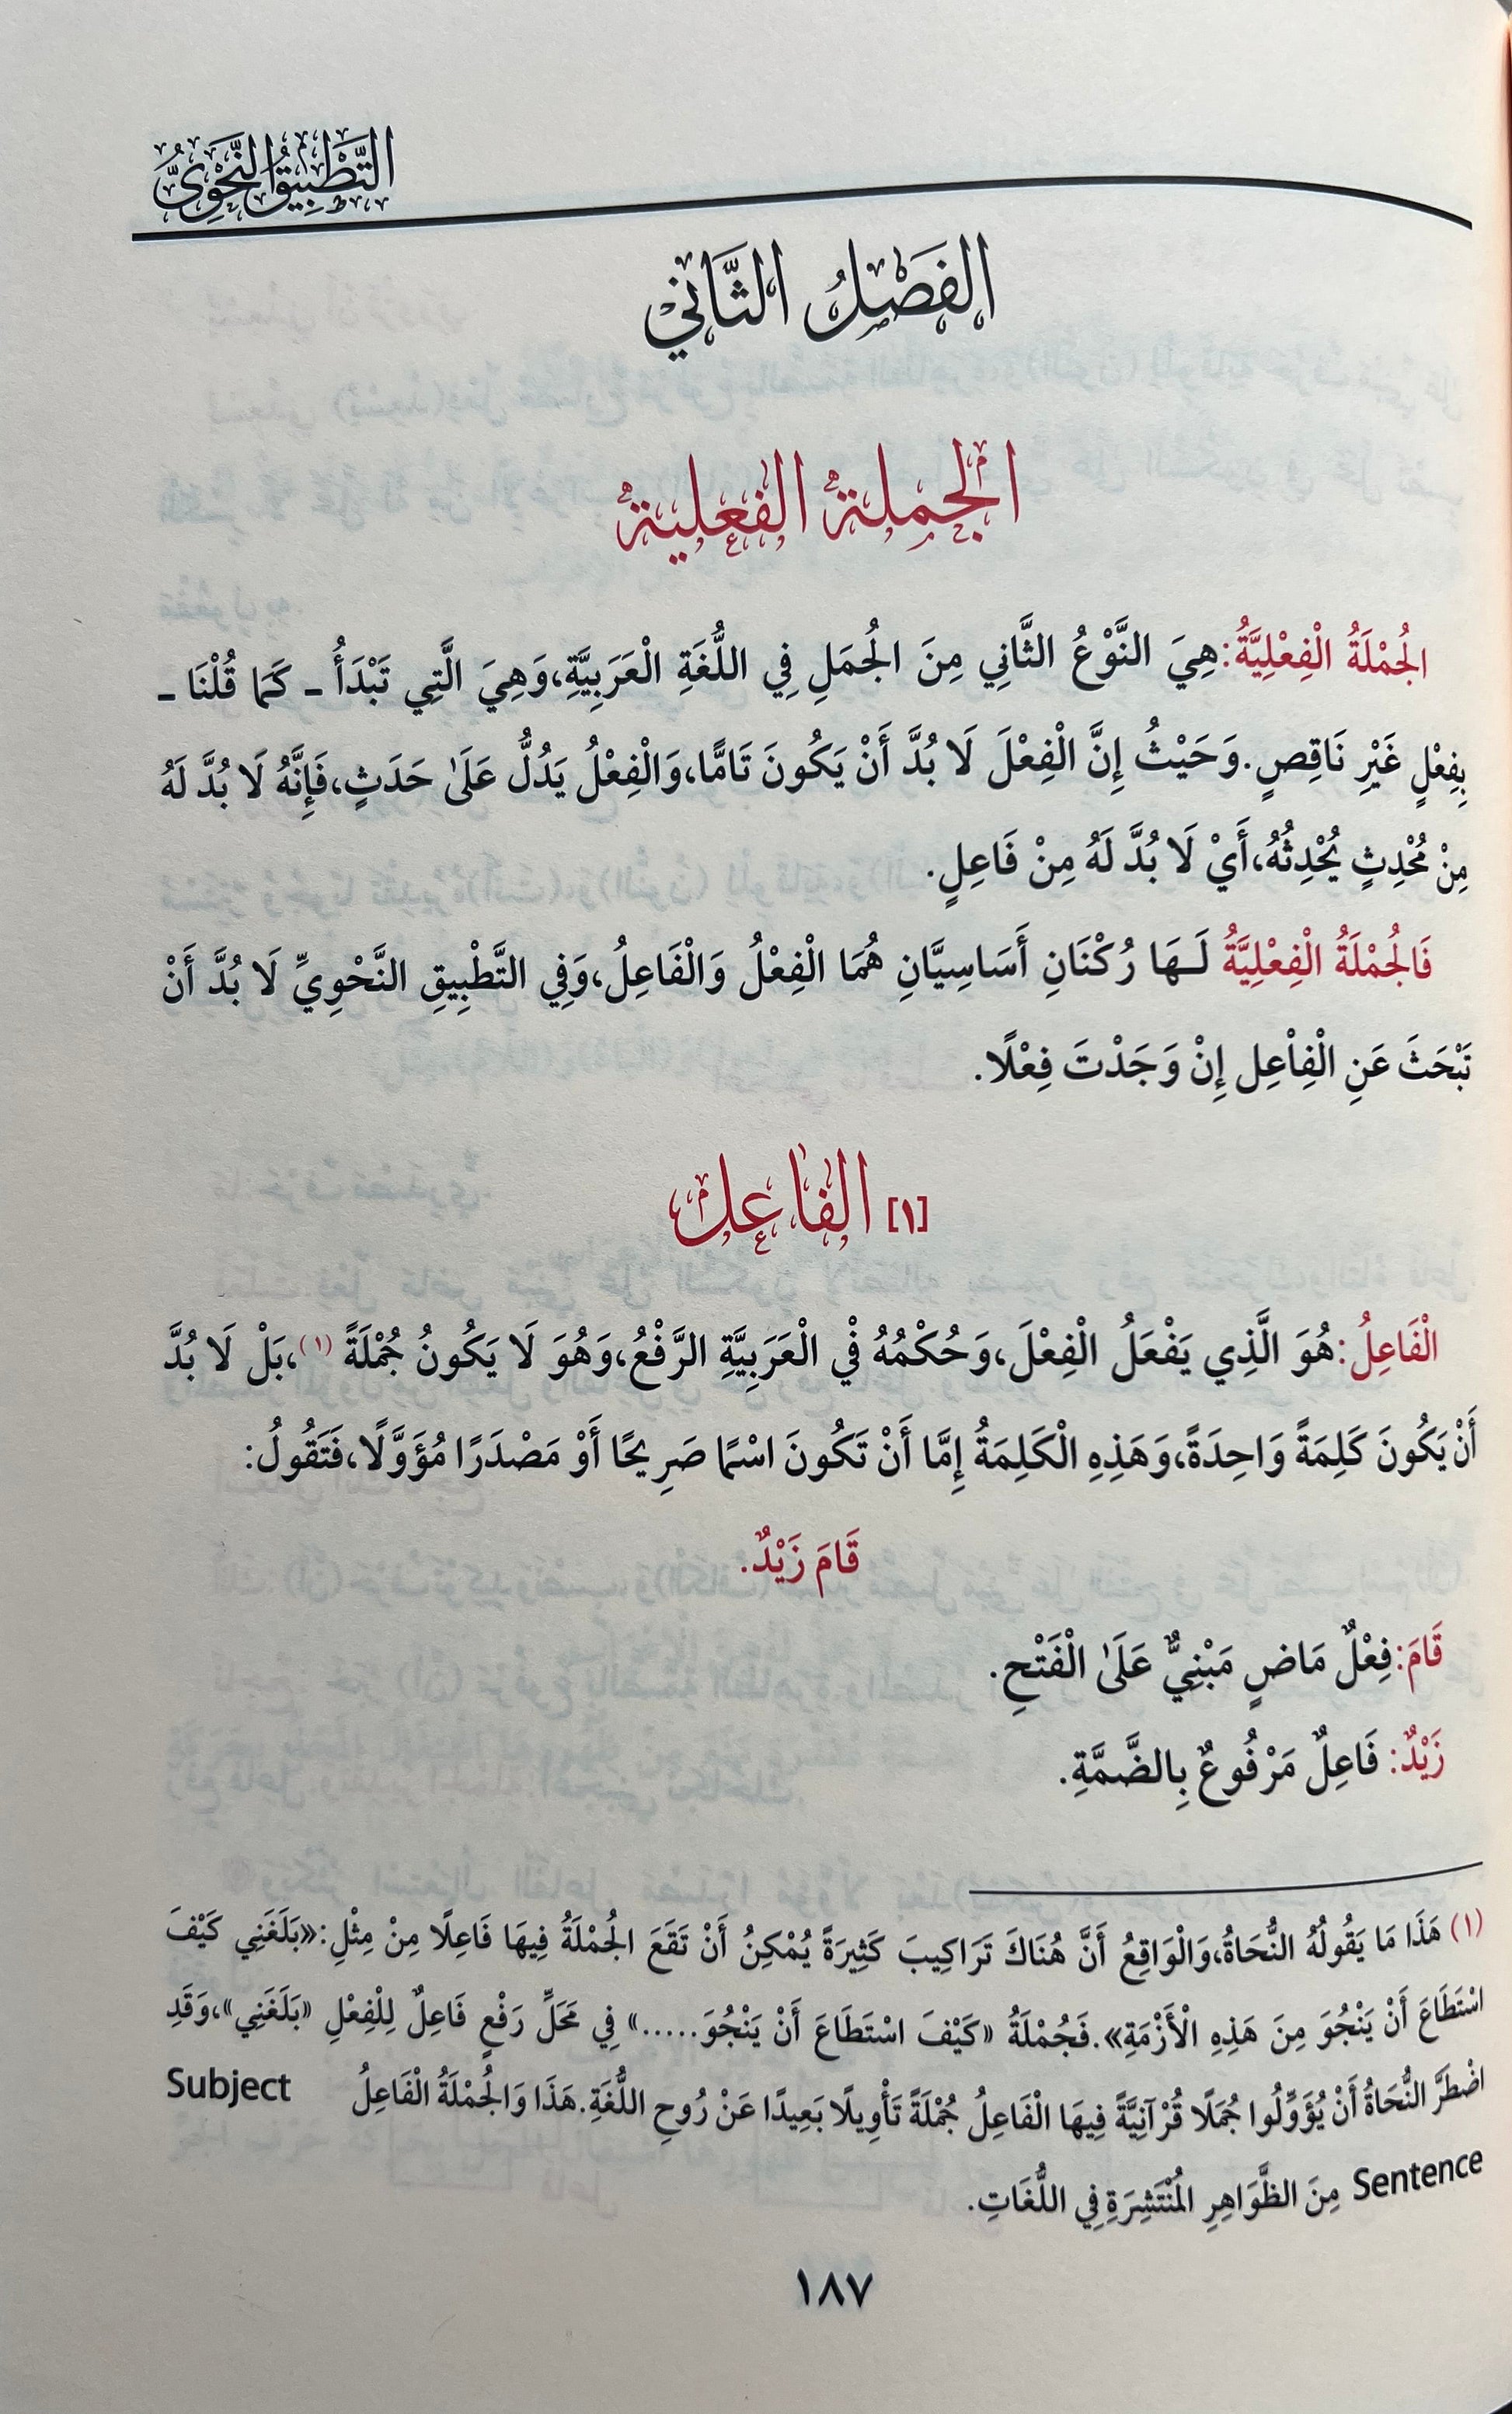 التَّطْبِيقُ النَّحْوِيُّ
الفَصْلُ الثَّانِي
الجملة الفعلية
الْجُمْلَةُ الْفِعْلِيَّةُ:هِيَ النَّوْعُ الثَّانِي مِنَ الْجُمَلِ فِي اللُّغَةِ الْعَرَبِيَّةِ،وَهِيَ الَّتِي تَبْدَأُ ـ كَمَا قُلْنَا ـ
بِفِعْلٍ غَيْرِ نَاقِصٍ.وَحَيْثُ إِنَّ الْفِعْلَ لَا بُدَّ أَنْ يَكُونَ تَامًّا،وَالْفِعْلُ يَدُلُّ عَلَىٰ حَدَثٍ،فَإِنَّهُ لَا بُدَّ لَهُ
مِنْ مُحْدِثٍ يُحْدِثُهُ،أَيْ لَا بُدَّ لَهُ مِنْ فَاعِلٍ.
فَالْجُمْلَةُ الْفِعْلِيَّةُ لَـهَا رُكْنَانِ أَسَاسِيَّانِ هُمَا الْفِعْلُ وَالْفَاعِلُ،وَفِي التَّطْبِيقِ النَّحْوِيِّ لَا بُدَّ أَنْ
تَبْحَثَ عَنِ الْفِاْعِل إِنْ وَجَدْتَ فِعْلًا.
[١] الفاعل
الْفَاعِلُ:هُوَ الَّذِي يَفْعَلُ الْفِعْلَ،وَحُكْمُهُ فْي الْعَرَبِيَّةِ الرَّفْعُ،وَهُوَ لَا يَكُونُ جُمْلَةً (١)،بَلْ لَا بُدَّ
أَنْ يَكُونَ كَلِمَةً وَاحِدَةً،وَهَذِهِ الْكَلِمَةُ إِمَّا أَنْ تَكُونَ اسْمًا صَرِيحًا أَوْ مَصْدَرًا مُؤَوَّلًا،فَتَقُولُ:
قَامَ زَيْدٌ.
قَامَ:فِعْلٌ مَاضٍ مَبْنِيٌّ عَلَىٰ الْفَتْحِ.
زَيْدٌ: فَاعِلٌ مَرْفُوعٌ بِالضَّمَّةِ.
(١) هَذَا مَا يَقُولُهُ النُّحَاةُ،وَالْوَاقِعُ أَنَّ هُنَاكَ تَرَاكِيبَ كَثِيرَةً يُمْكِنُ أَنْ تَقَعَ الْجُمْلَةُ فِيهَا فَاعِلًا مِنْ مِثْلِ:«بَلَغَنِي كَيْفَ
اسْتَطَاعَ أَنْ يَنْجُوَ مِنَ هَذِهِ الْأَزْمَةِ».فَجُمْلَةُ «كَيْفَ اسْتَطَاعَ أَنْ يَنْجُوَ.....» فِي مَحَلِّ رَفْعٍ فَاعِلٌ لِلْفِعْلِ «بَلَغَنِي»،وَقَدِ
اضْطَرَّ النُّحَاةُ أَنْ يُؤَوِّلُوا جُمَلًا قُرْآنِيَّةً فِيهَا الْفَاعِلُ جُمْلَةً تَأْوِيلًا بَعِيدًا عَنْ رُوحِ اللُّغَةِ.هَذَا وَالْجُمْلَةُ الْفَاعِلُ Subject
Sentence مِنَ الظَّوَاهِرِ الْمُنْتَشِرَةِ فِي اللُّغَاتِ.
١٨٧